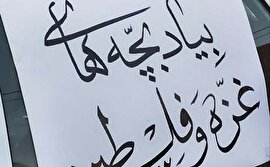 بیاد بچّه های
غزّه و فلسطین